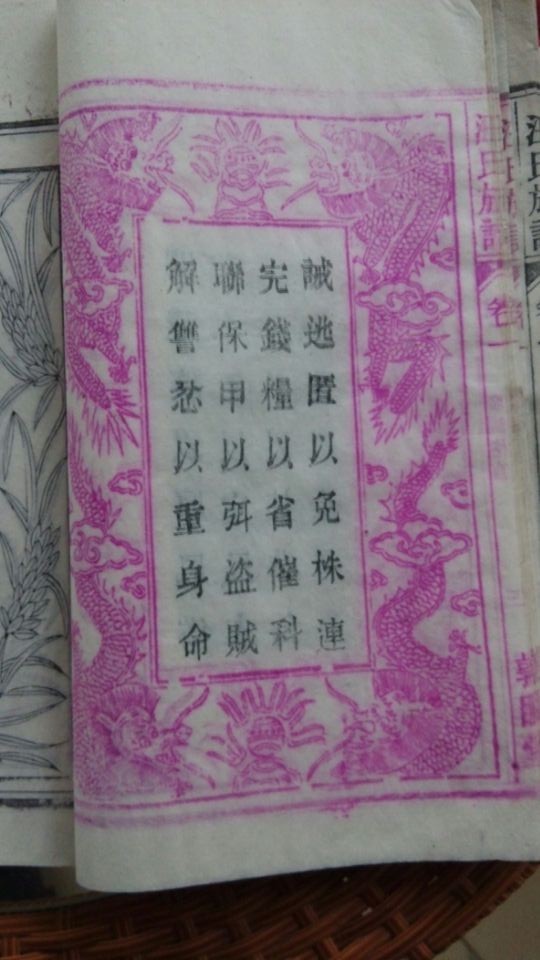 氏族譜
卷一
誡迯匿以免株連
完錢糧以省催科
聯保甲以弭盜賊
解讐忿以重身命